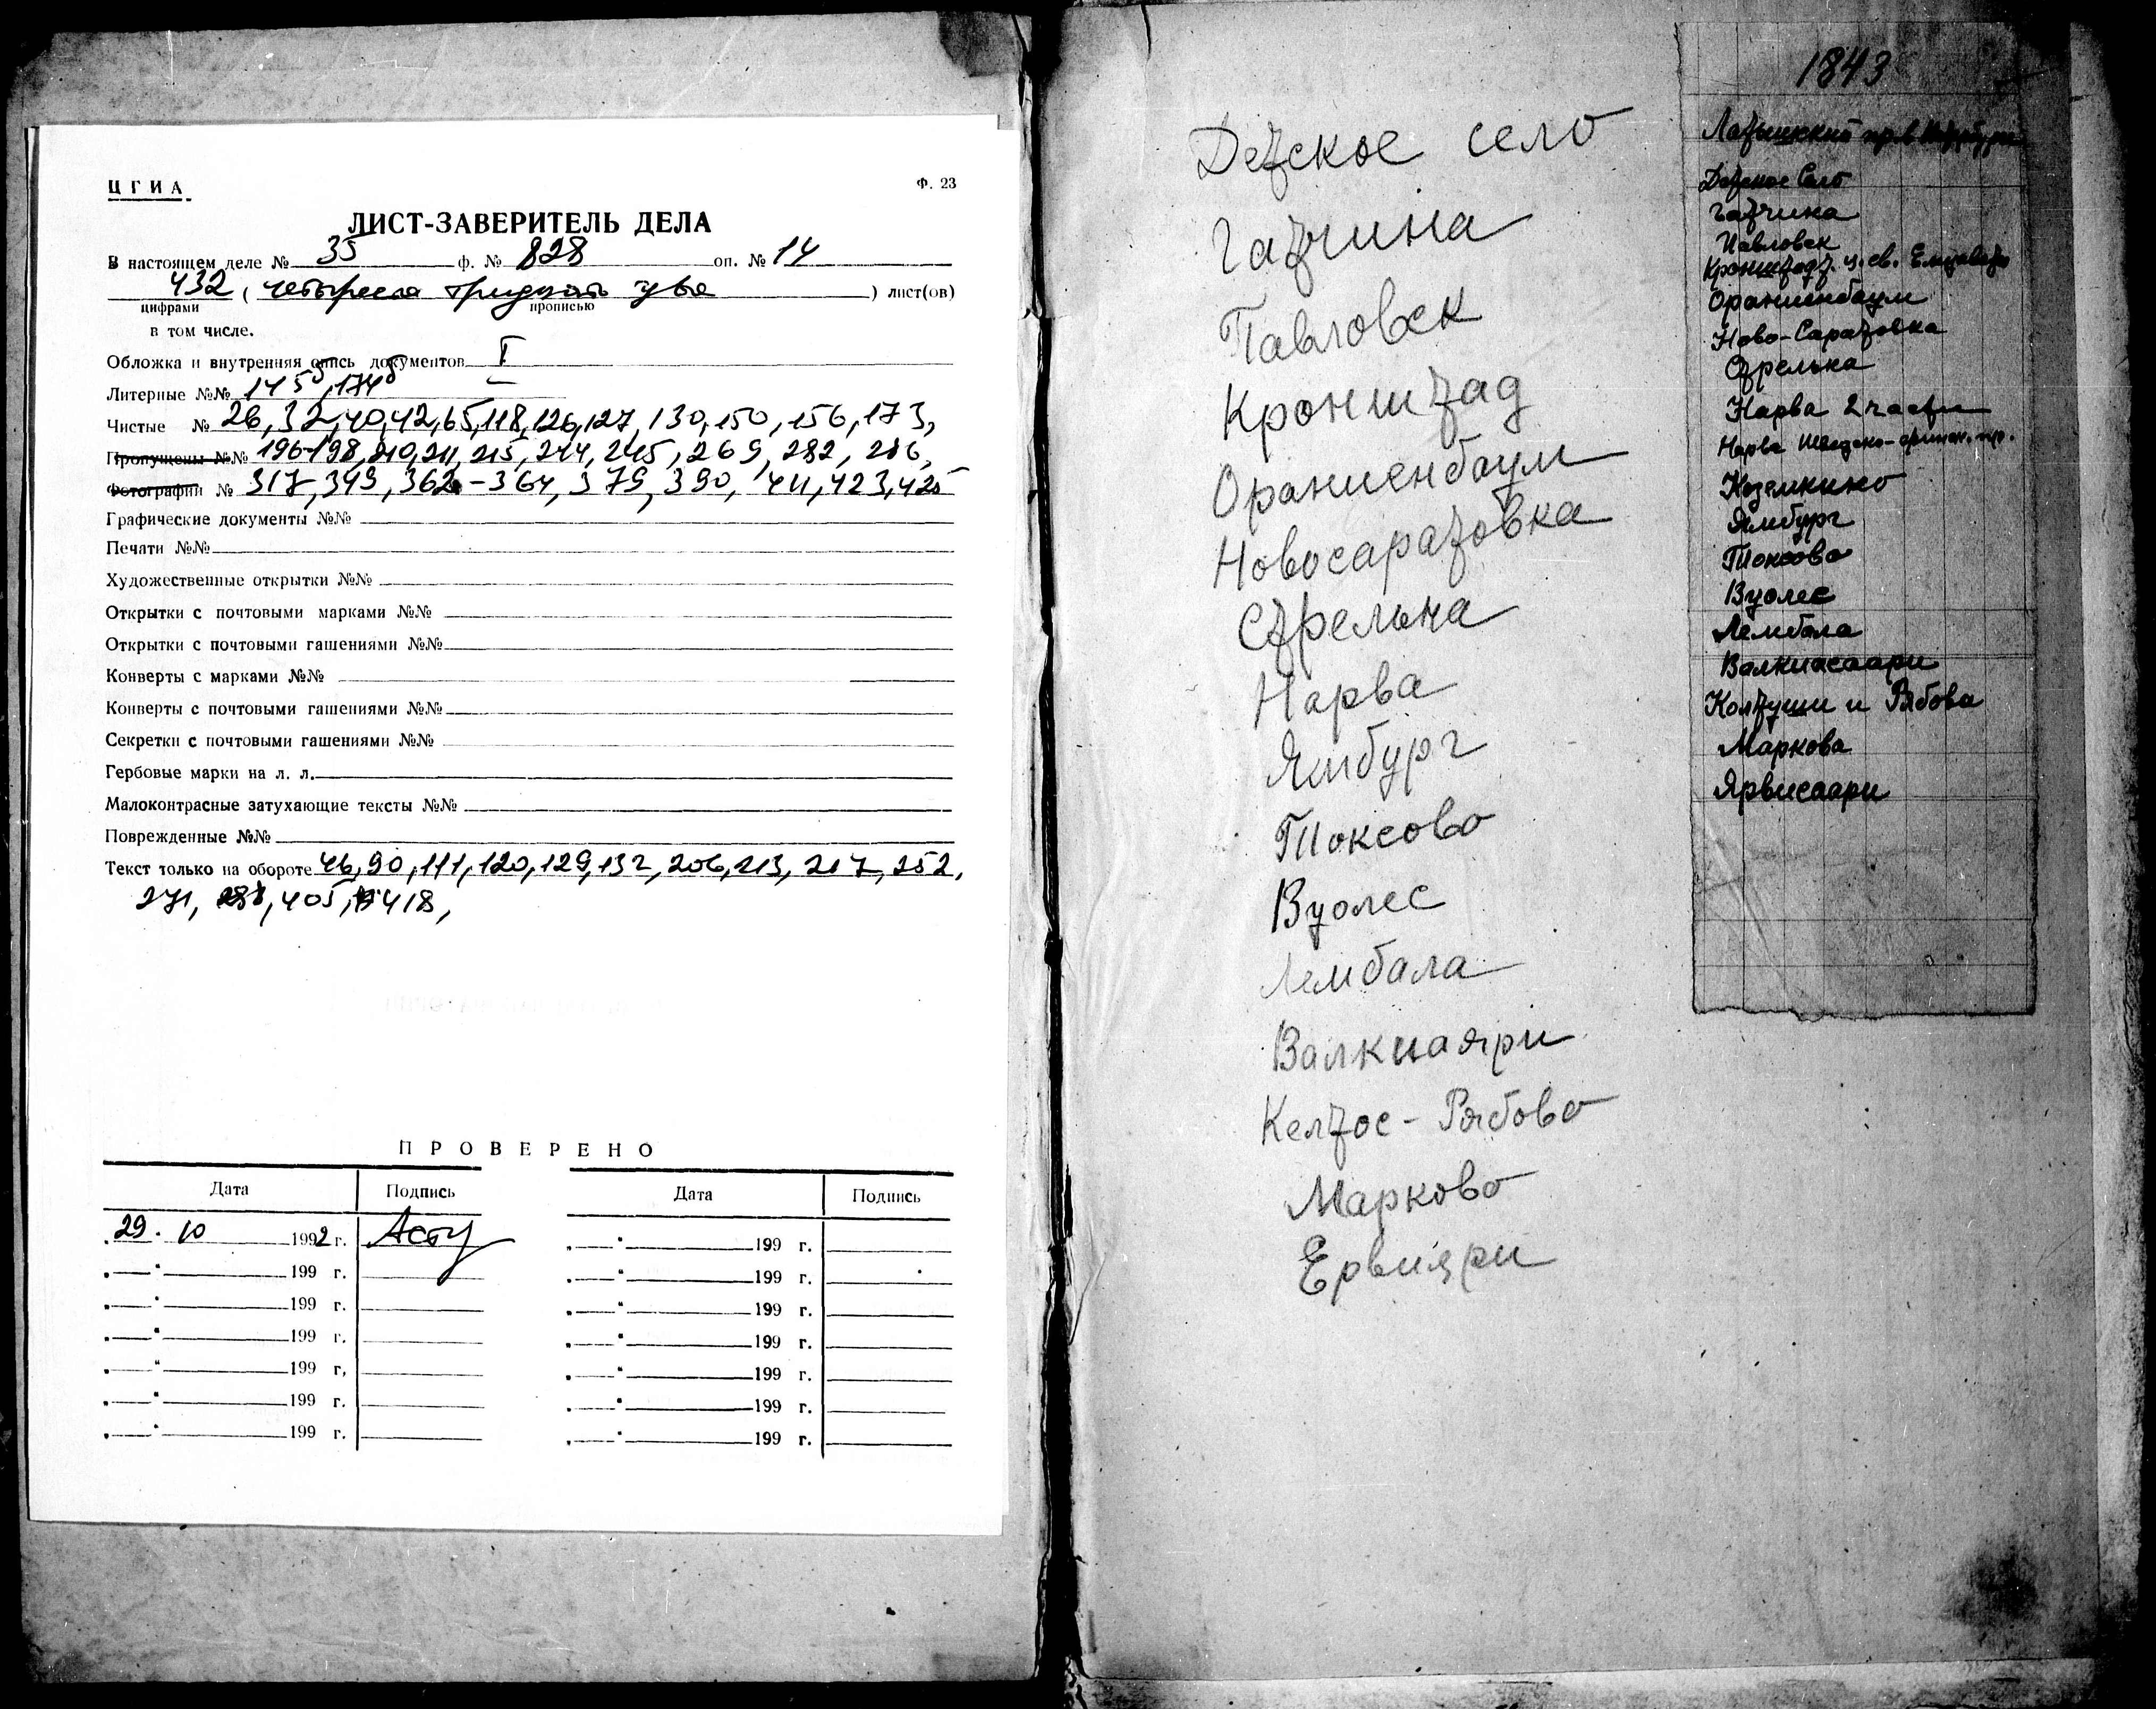 ЦГИА
Ф. 23
ЛИСТ-ЗАВЕРИТЕЛЬ ДЕЛА
В настоящем деле № 35 ф. № 828 оп. № 14
432 (четыреста тридцать два) лист(ов)
цифрами прописью
в том числе.
Обложка и внутренняя опись документов I
Литерные №№ 145б, 174б
Чистые № 26, 32, 40, 42, 65, 118, 126, 127, 130, 150, 156, 173,
Пропущены №№ 196-198, 210, 211, 215, 244, 245, 269, 282, 286,
Фотографии № 317, 349, 362-364, 379, 390, 411, 423, 425
Графические документы №№
Печати №№
Художественные открытки №№
Открытки с почтовыми марками №№
Открытки с почтовыми гашениями №№
Конверты с марками №№
Конверты с почтовыми гашениями №№
Секретки с почтовыми гашениями №№
Гербовые марки на л. л.
Малоконтрасные затухающие тексты №№
Поврежденные №№
Текст только на обороте 46, 90, 111, 120, 129, 132, 206, 213, 217, 252,
271, 405, 418,
ПРОВЕРЕНО
Дата Подпись Дата Подпись
29. 10 1992 г. „ — “ 199 г.
„ — “ 199 г. „ — “ 199 г.
„ — “ 199 г. „ — “ 199 г.
„ — “ 199 г. „ — “ 199 г.
„ — “ 199 г, „ — “ 199 г.
„ — “ 199 г. „ — “ 199 г.
„ — “ 199 г. „ — “ 199 г.
Детское село
Гатчина
Павловск
Кронштад
Ораниенбаум
Новосаратовка
Стрельна
Нарва
Ямбург
Токсово
Вуолес
Лембала
Валкиаяри
Келтос-Рябово
Марково
Ервияри
1843
Латышский пр. в
Детское Село
Гатчина
Павловск
Кронштадт. ц. св. Елизаветы
Ораниенбаум
Ново-Саратовка
Стрельна
Нарва 2 части
Нарва Шведско-финск. пр.
Коземкино
Ямбург
Токсово
Вуолес
Лембала
Валкиасаари
Колтуши и Рябова
Маркова
Ярвисаари